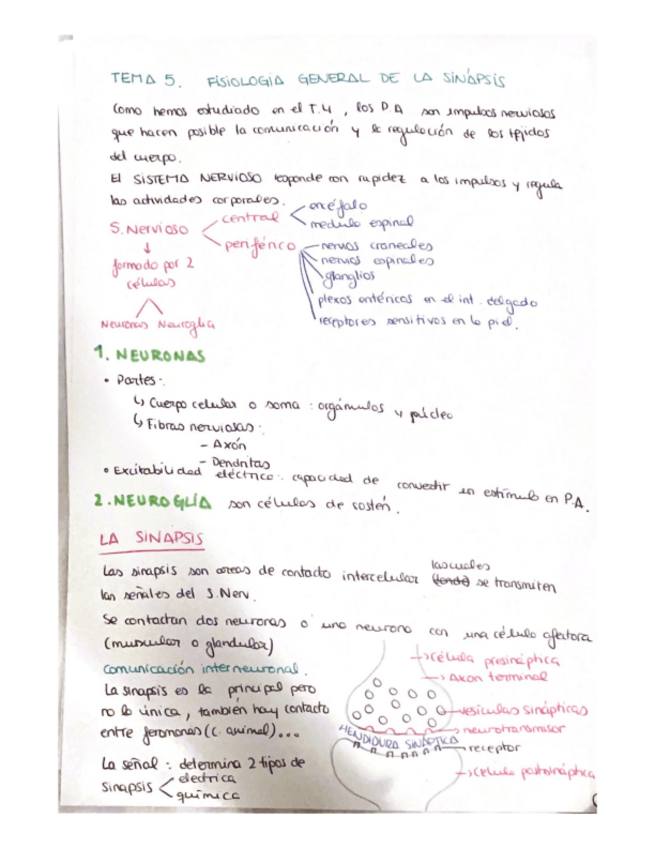 TEMA 5. FISIOLOGIA GENERAL DE LA SINÁPSIS
Como hemos estudiado en el T.4, los P.A son impulsos nerviosos
que hacen posible la comunicación y la regulación de los tejidos
del cuerpo.
El SISTEMA NERVIOSO responde con rapidez a los impulsos y regula
las actividades corporales.
S. Nervioso
central
encéfalo
medula espinal
periférico
nervios craneales
nervios espinales
glanglios
plexos entéricos en el int. delgado
receptores sensitivos en la piel.
↓
formado por 2
células
Neuronas Neuroglia
1. NEURONAS
• Partes:
↳ Cuerpo celular o soma: orgánulos y núcleo
↳ Fibras nerviosas:
- Axón
- Dendritas
• Excitabilidad eléctrica: capacidad de convertir un estímulo en P.A.
2. NEUROGLÍA son células de sostén.
LA SINAPSIS
Las sinapsis son areas de contacto intercelular las cuales se transmiten
las señales del S. Nerv.
Se contactan dos neuronas o una neurona con una célula efectora
(muscular o glandular)
Comunicación interneuronal.
La sinapsis es la principal pero
no la única, también hay contacto
entre feromonas (c. animal)...
La señal: determina 2 tipos de
sinapsis
electrica
química
→ célula presináptica
→ Axon terminal
vesiculas sinápticas
→ neurotransmisor
HENDIDURA SINÁPTICA
receptor
→ célula postsináptica